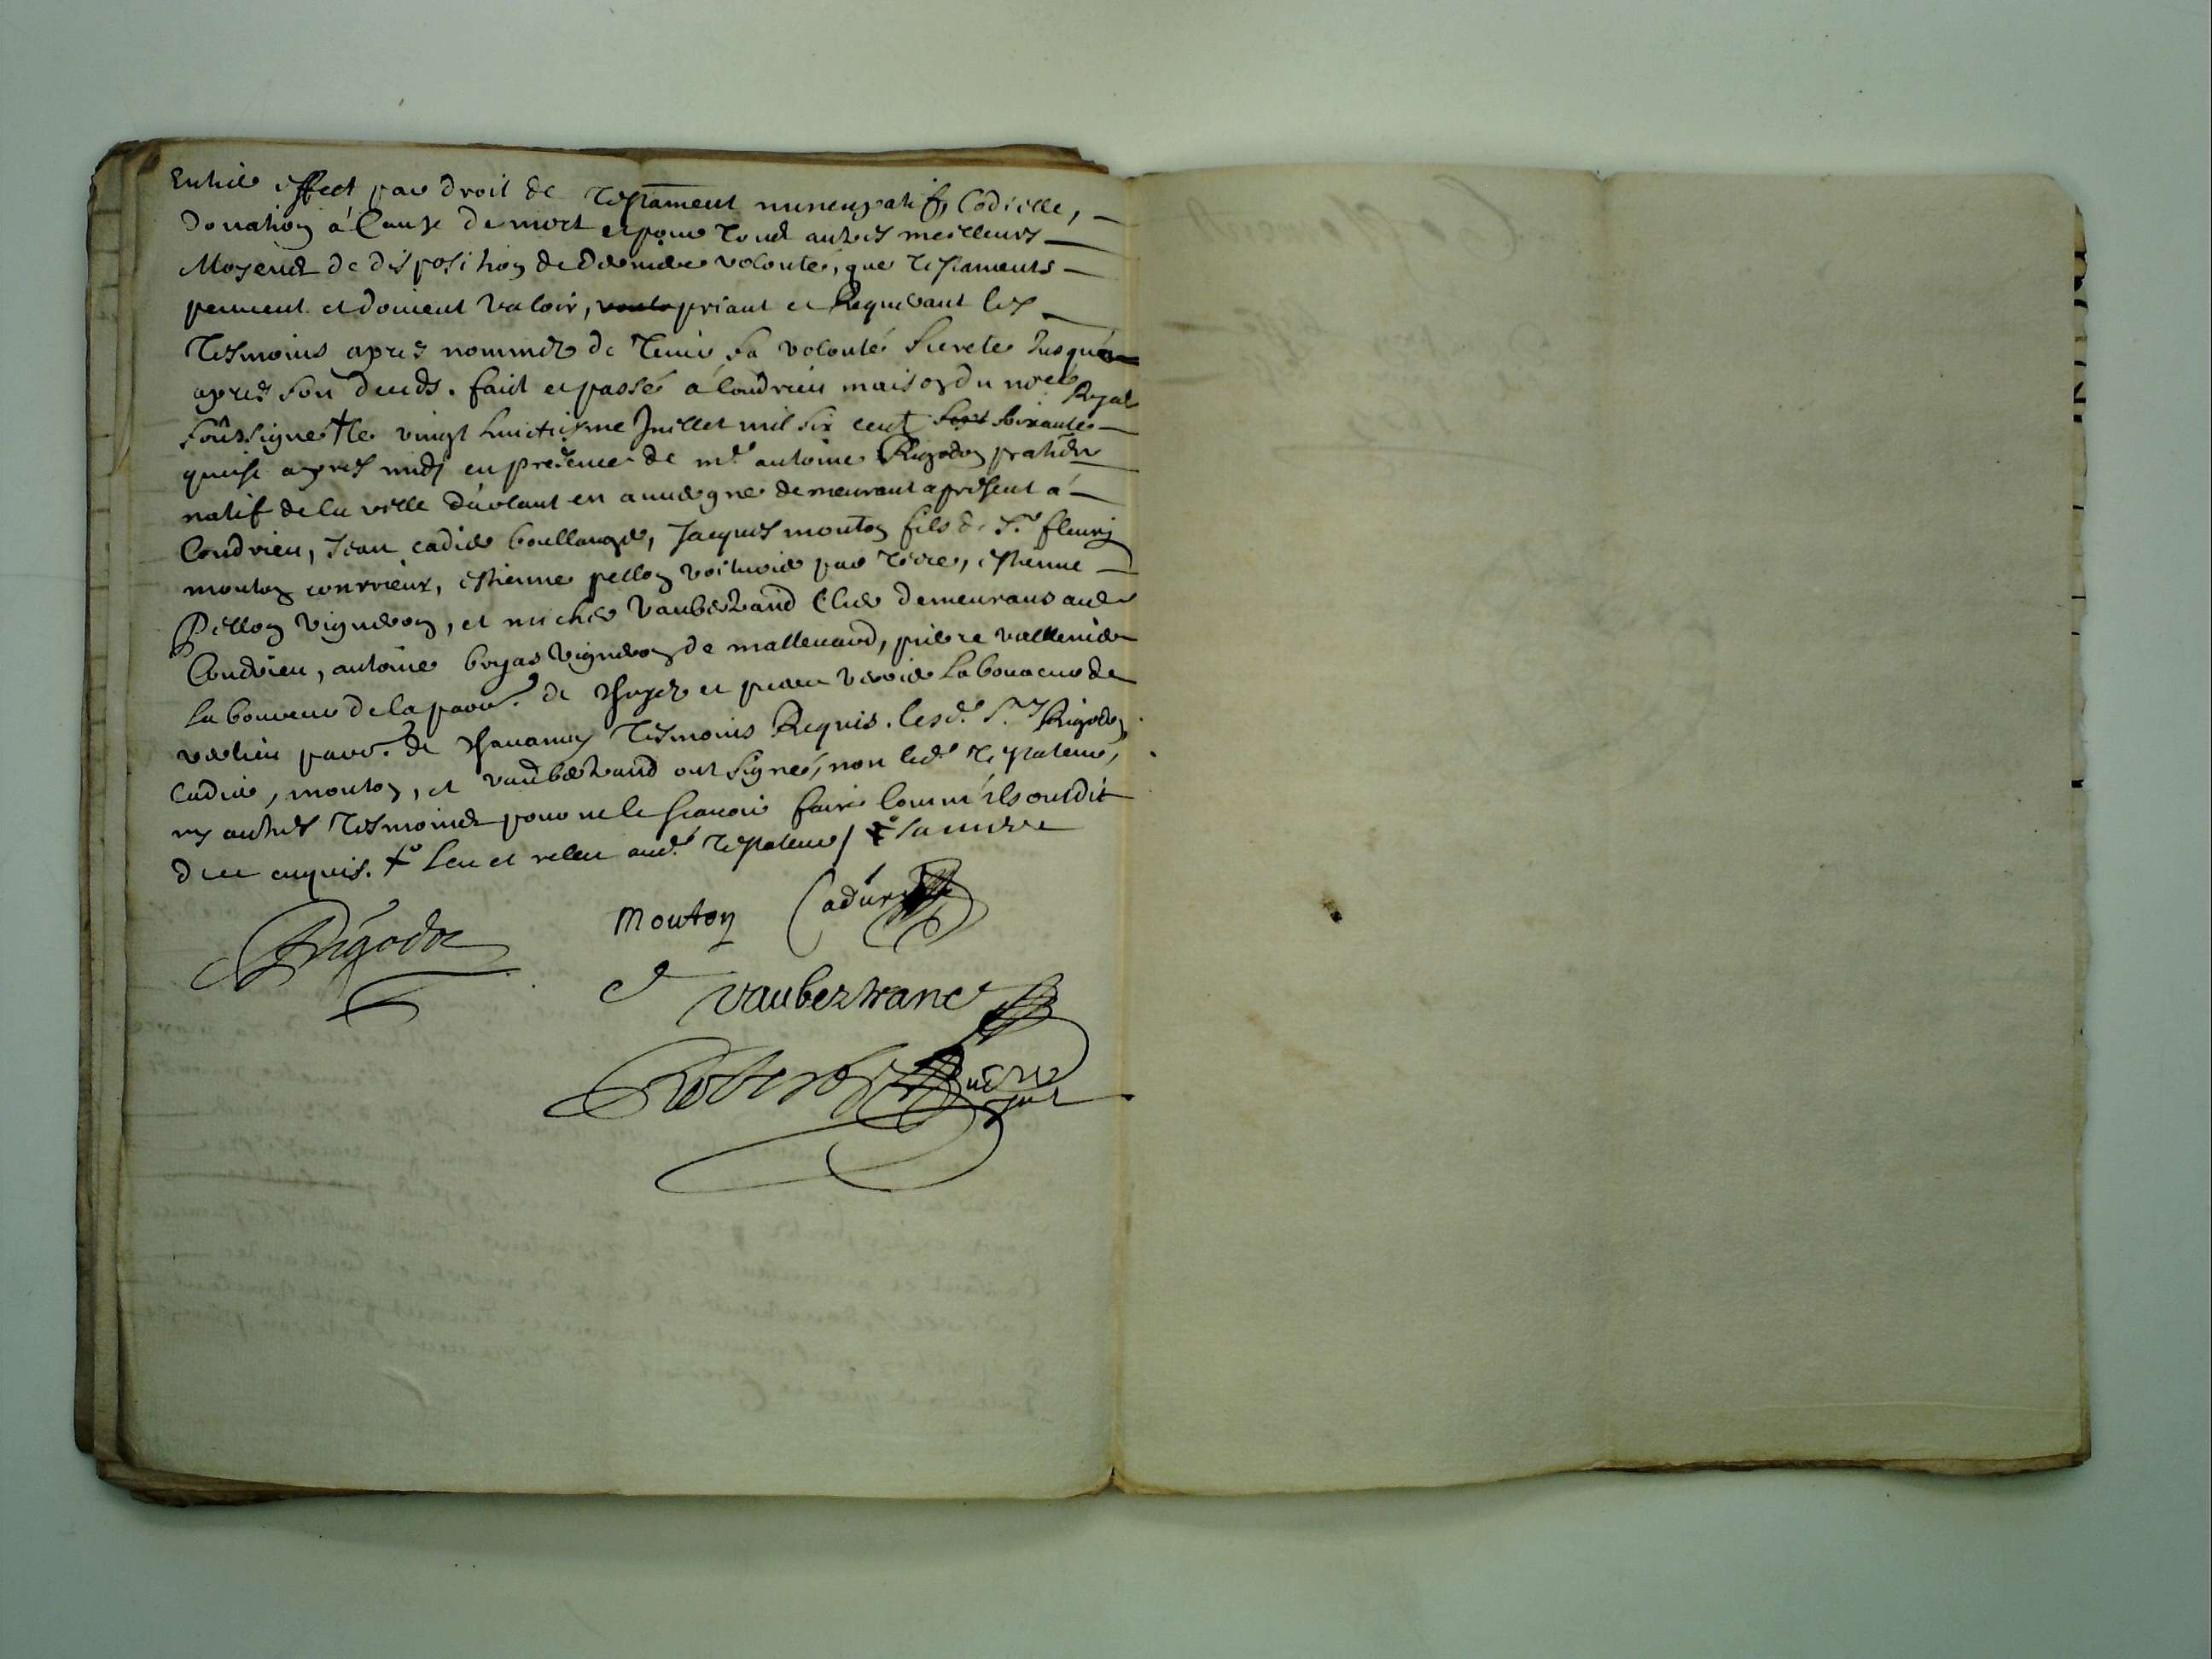 Entier effect par droit de Testament nuncupatif, Codicille,
donation a Cause de mort et pour tous autres meilleurs
Moyens de disposition de Derniere volonte, que Testaments
peuvent et doivent valoir, priant et Requerant les
Tesmoins apres nommez de tenir sa volonté secrete Jusques
apres son deceds. fait et passé a Condrieu maison du no.re Royal
soussigné † le vingt huictiesme Juillet mil six cent sept soixante
quinse apres midy en presence de m.e antoine Rigodon praticien
natif de la ville d'avlant en auvergne demeurant a present a
Condrieu, Jean cadier boullanger, Jacques mouton fils de S.r fleury
mouton courrieux, estienne pellon voiturier par terre, estienne
Pellon vigneron, et michel Vaubertrand Clerc demeurans aud.
Condrieu, antoine boyas vigneron de mallevard, pierre
laboureur de la parr. de et laboureur de
verlieu parr. de Chavanay Tesmoins Requis. lesd. S.rs Rigodon,
Cadier, mouton, et vaubertrand ont signé, non led. Testateur,
ny autres Tesmoins pour ne le scavoir faire comme ils ont dit
de ce enquis. † leu et releu aud. Testateur /
Rigodon
Mouton Cadier
Vaubertrand